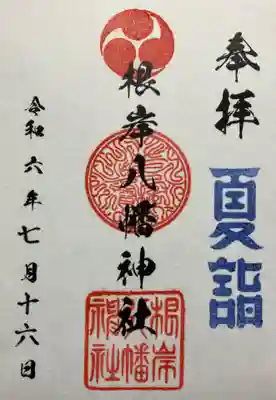 奉拝
夏詣
根岸八幡神社
根岸
八幡
神社
令和六年七月十六日